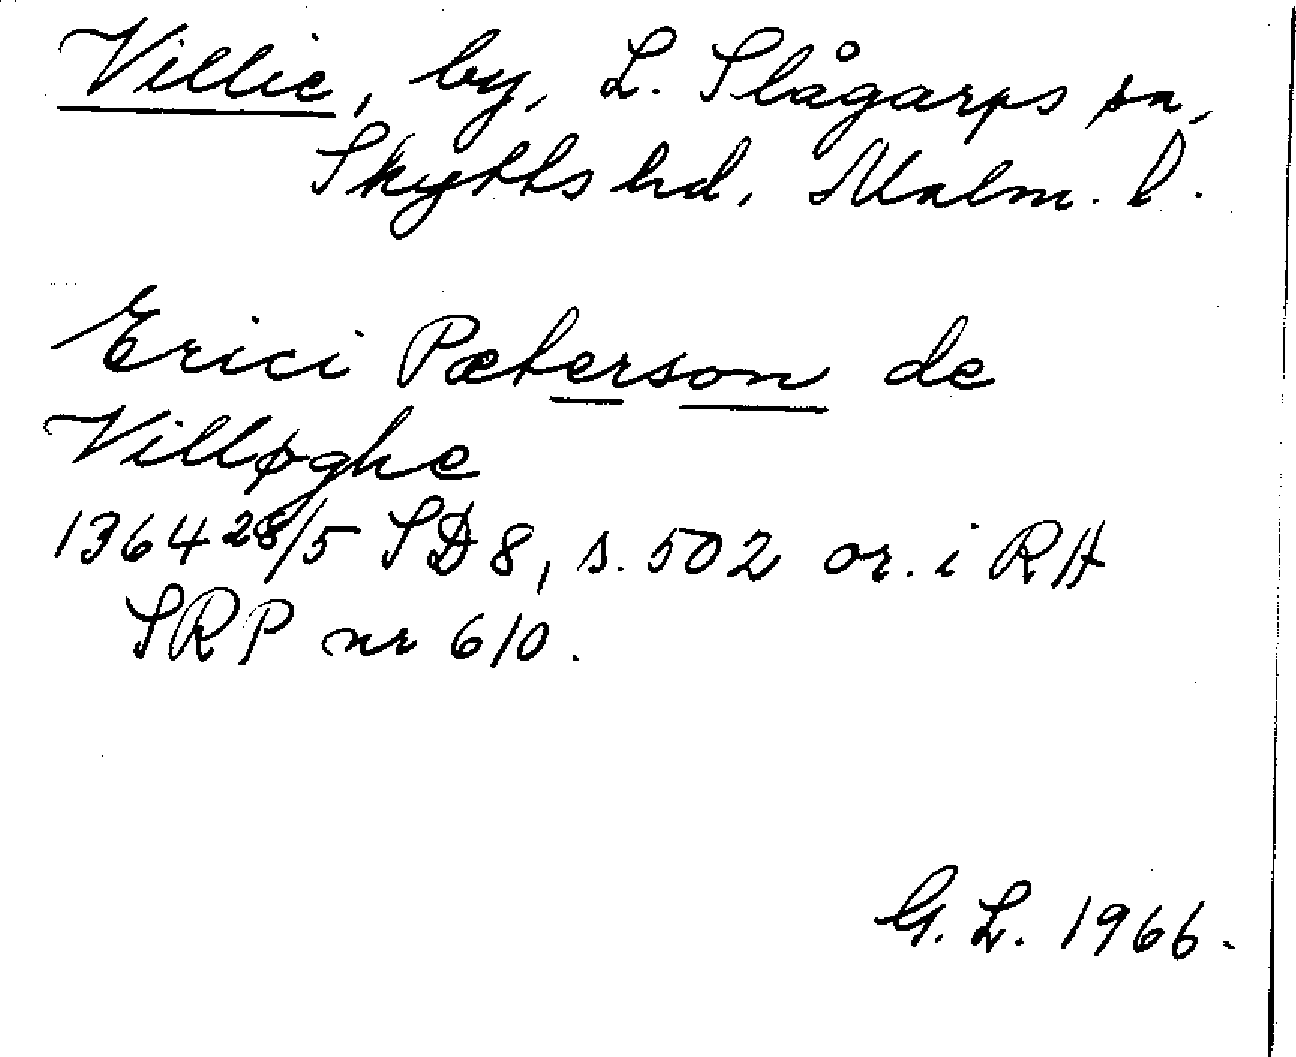 Villie, by, L. Slågarps sn,
Skytts hd, Malm. l.
Erici Pæterson de
Villøghe
1364 28/5 SD 8, s. 502 or. i RA
SRP nr 610.
G. L. 1966.